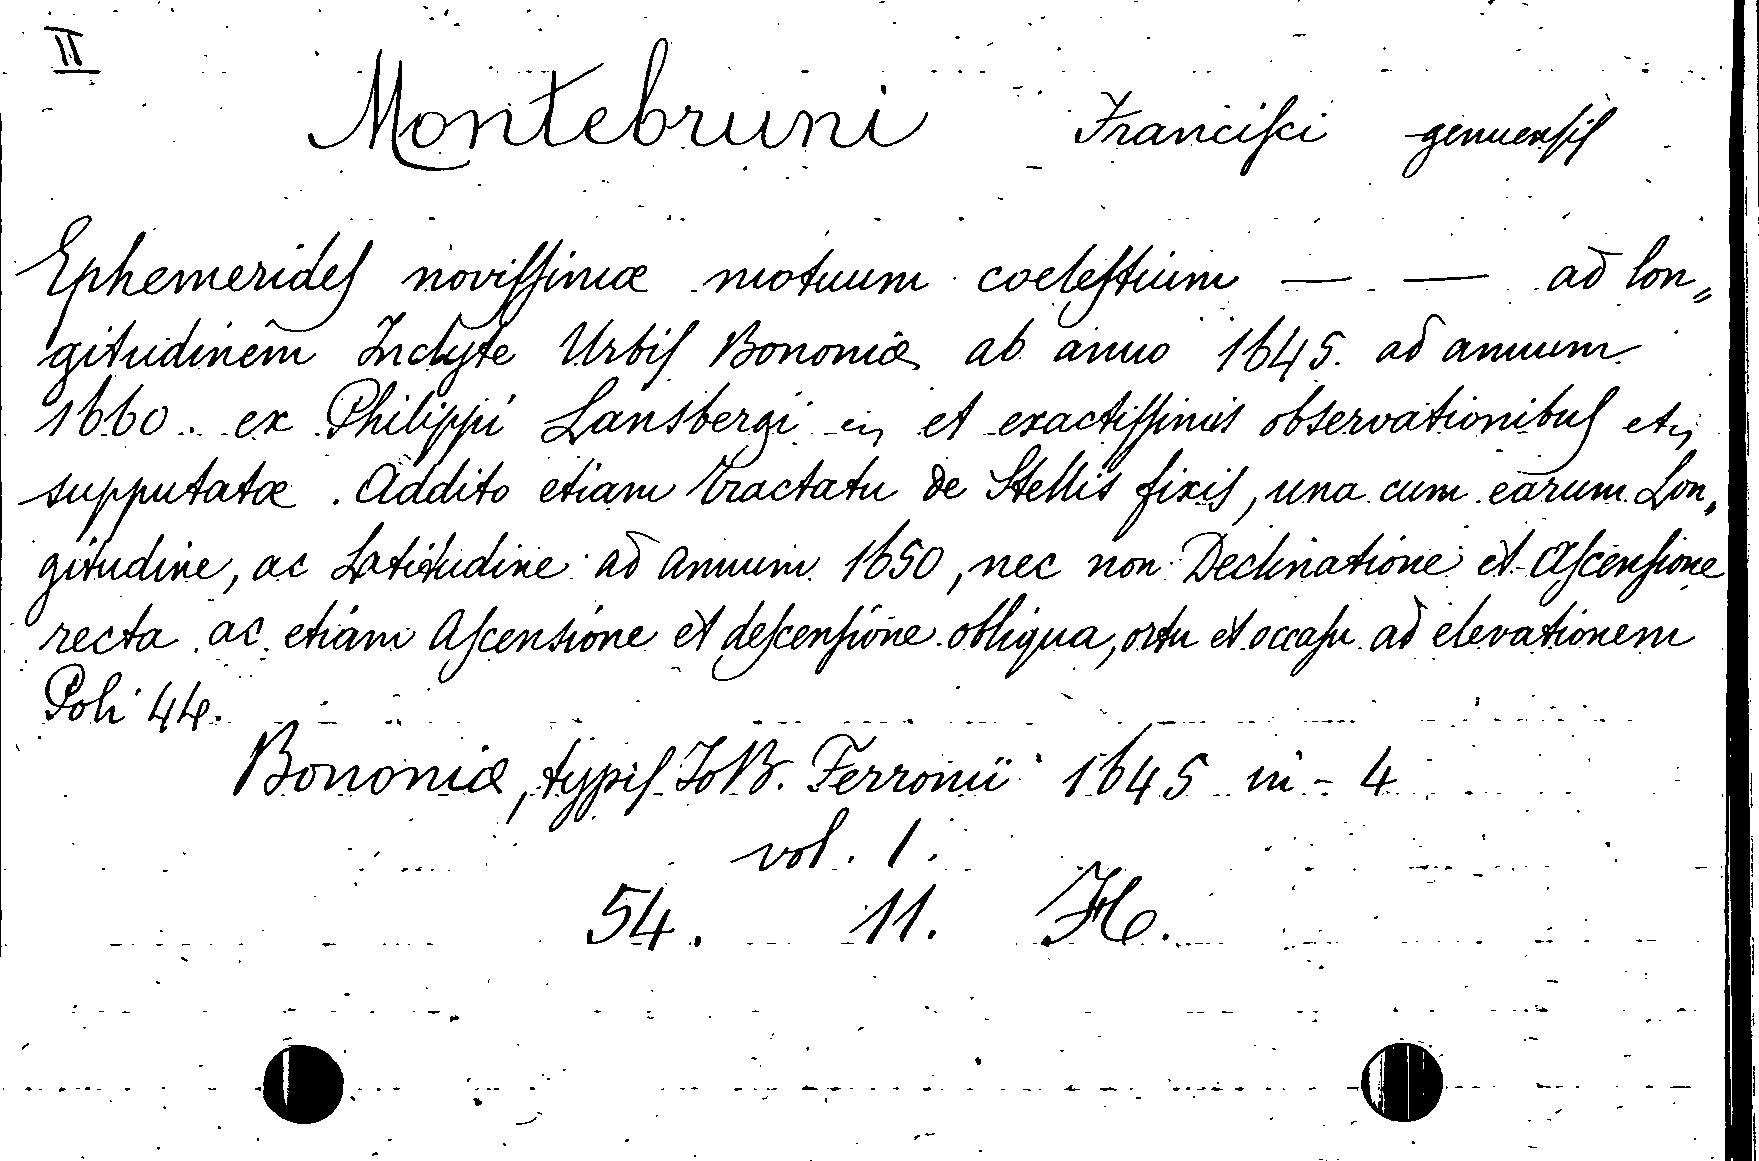 II
Montebruni Franciſci genuenſiſ
Ephemerideſ noviſſimæ motuum coeleſtium — — ad lon„
gitudinem Inclyte Urbiſ Bononiæ ab anno 1645. ad annum
1660. ex Philippi Lansbergi et exactiſſimis observationibuſ
supputatæ. Addito etiam tractatu de Stellis fixiſ, una cum earum Lon„
gitudine, ac Latitudine ad annum 1650, nec non Declinatione et Aſcenſione
recta ac etiam Aſcensione et deſcenſione obliqua, ortu et occaſu ad elevationem
Poli 44.
Bononiæ, typiſ JoB. Ferronii 1645 in-4
vol. 1.
54. 11. H.